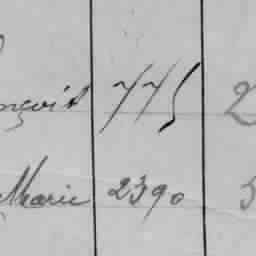 ançois 775 2
Marie 2390 5